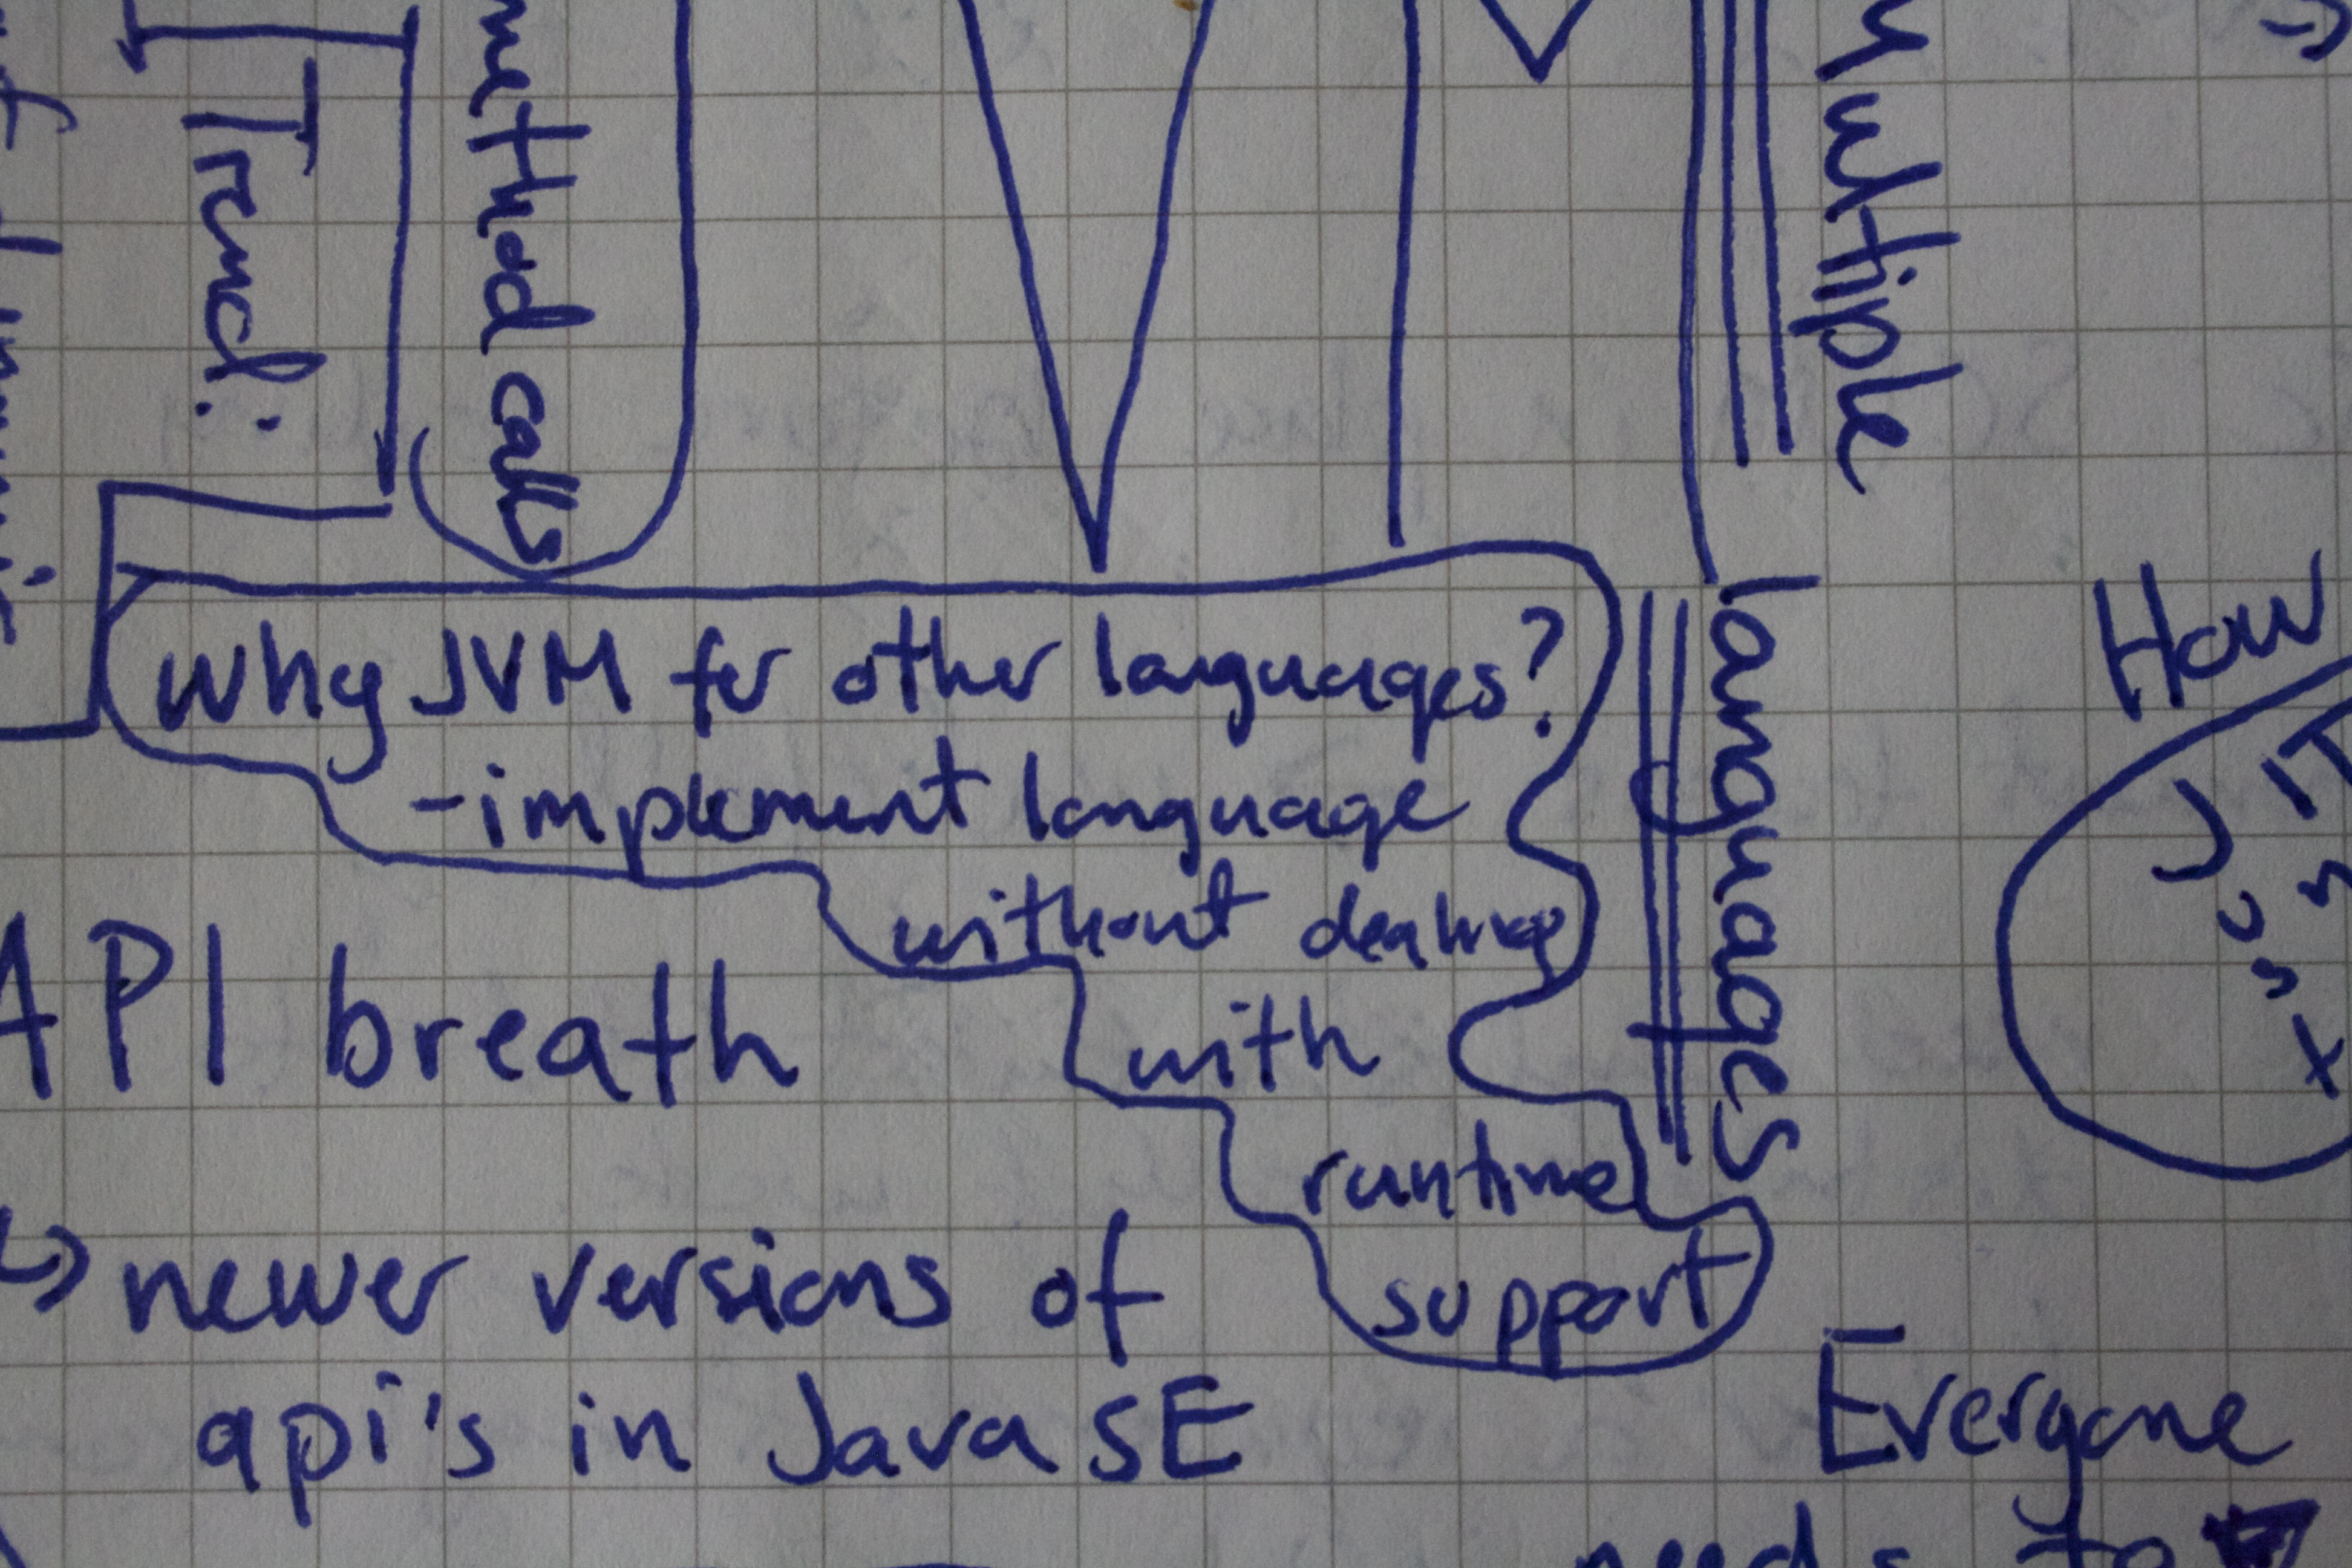 Trend:
method calls
Multiple
languages
Why JVM for other languages?
- implement language
without dealing
with
runtime
support
API breath
↳ newer versions of
api's in Java SE
How
JIT
Everyone
needs to